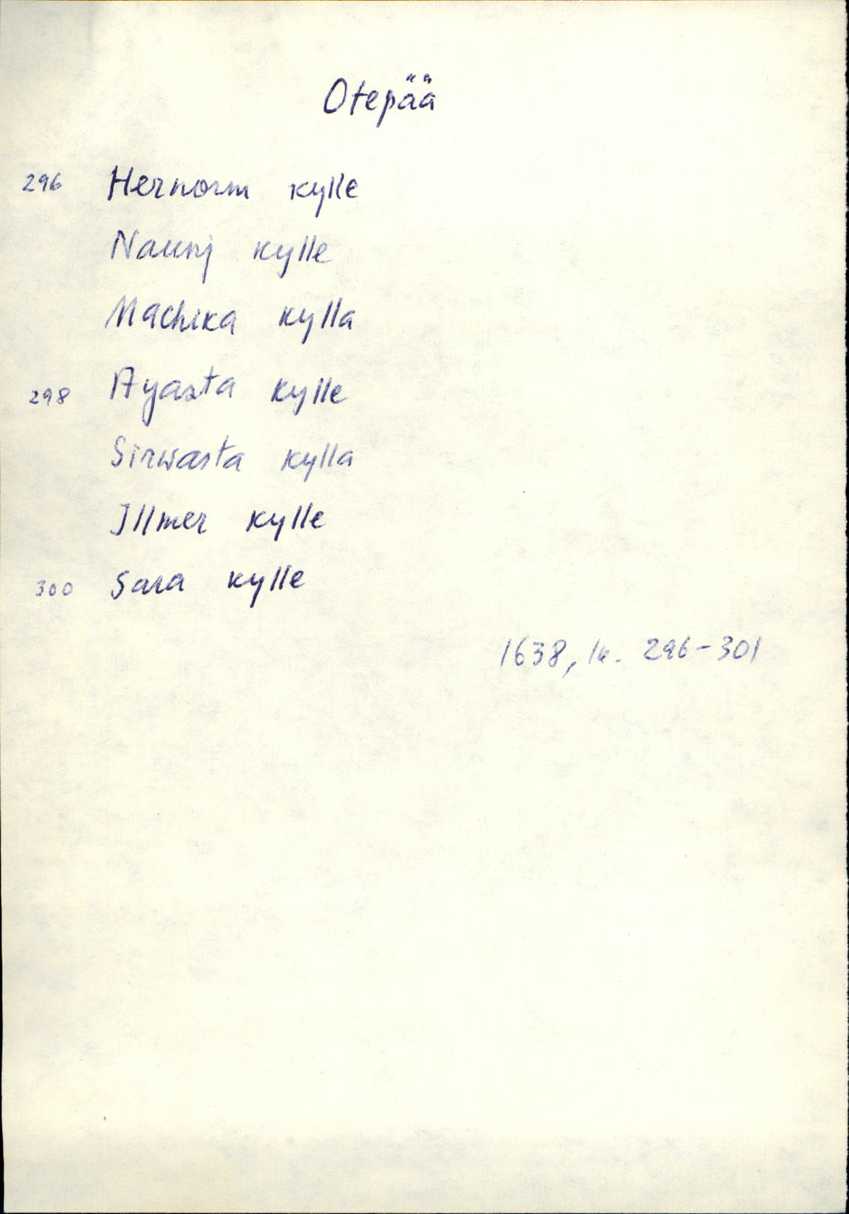 Otepää
296 Hernorm kylle
Naunj kylle
Machika kylla
298 Ayasta kylle
Sirwasta kylla
Illmer kylle
300 Sara kylle
1638, lk. 296-301